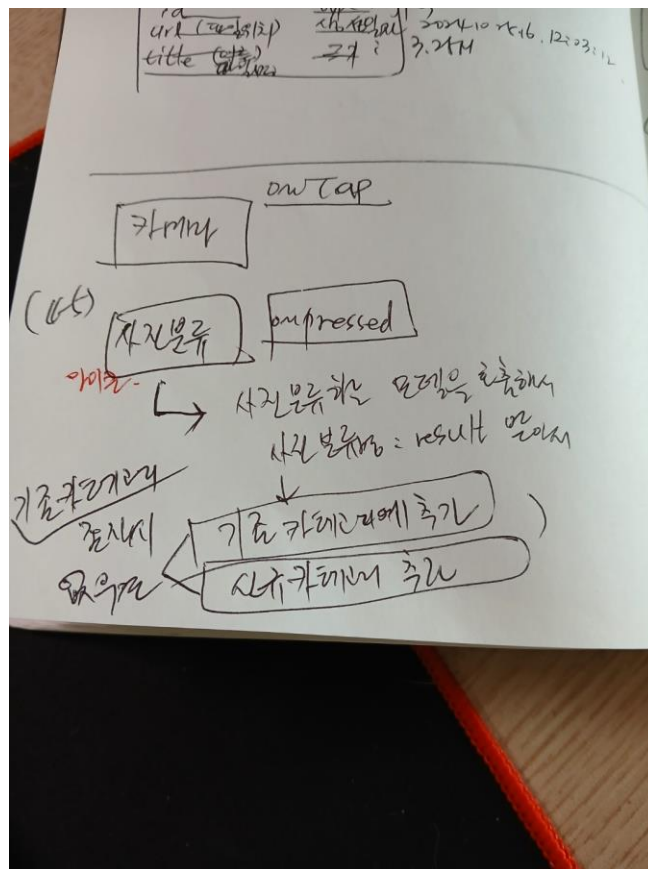 id
url (파일위치) 생성일시 2024.10.25.6.12:03:12
title (이름) 크기 : 3.2M
onTap
카메라
사진분류 onpressed
아이콘
사진분류하는 모델을 호출해서
사진분류명 = result 받아서
기존카테고리
존재시 기존 카테고리에 추가
없으면 신규카테고리 추가